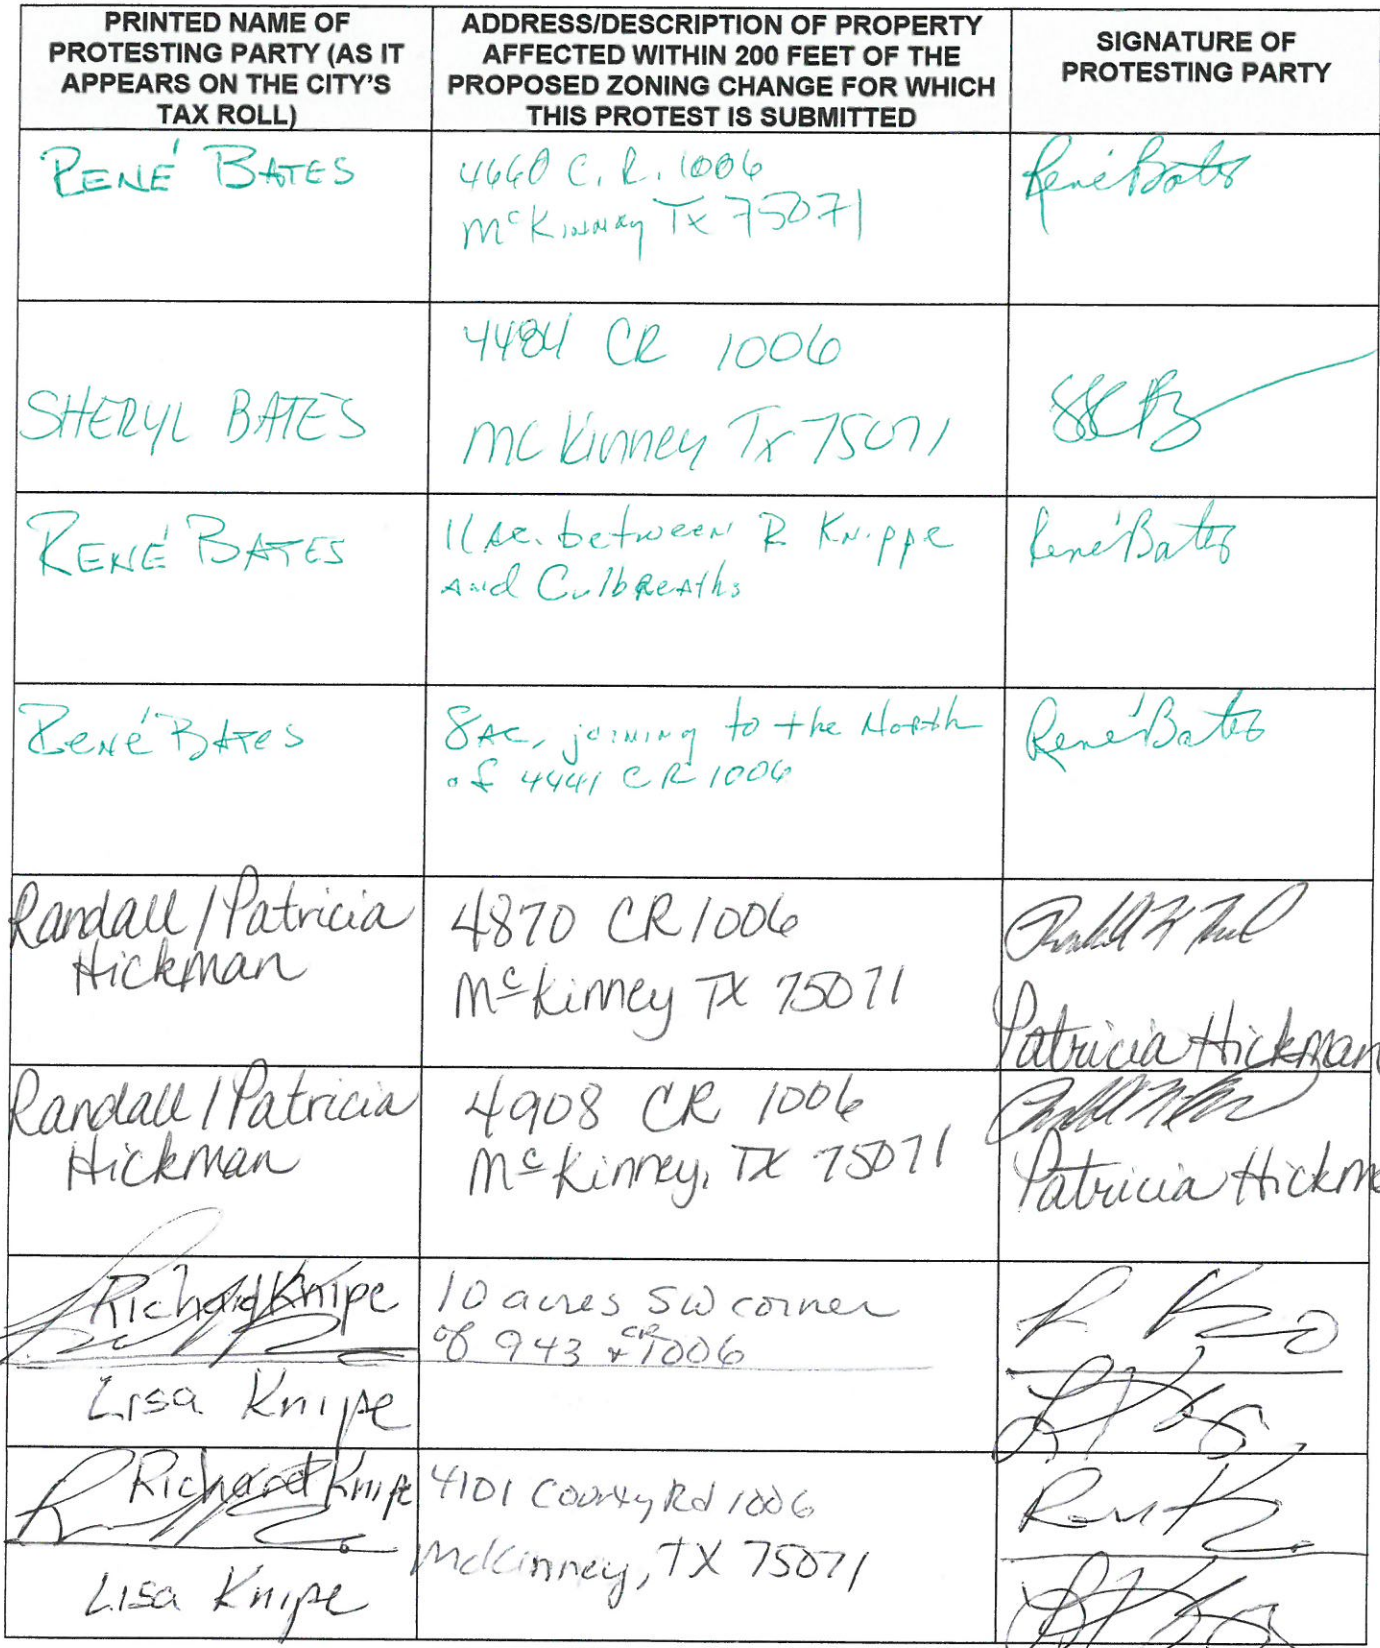 PRINTED NAME OF
PROTESTING PARTY (AS IT
APPEARS ON THE CITY'S
TAX ROLL)
ADDRESS/DESCRIPTION OF PROPERTY
AFFECTED WITHIN 200 FEET OF THE
PROPOSED ZONING CHANGE FOR WHICH
THIS PROTEST IS SUBMITTED
SIGNATURE OF
PROTESTING PARTY
RENÉ BATES
4660 C.R. 1006
McKinney TX 75071
René Bates
SHERYL BATES
4484 CR 1006
McKinney Tx 75071
RENÉ BATES
11 Ac. between R Knippe
and Culbreaths
René Bates
René Bates
8 Ac, joining to the North
of 4441 CR 1006
René Bates
Randall / Patricia
Hickman
4870 CR 1006
McKinney TX 75071
Patricia Hickman
Randall / Patricia
Hickman
4908 CR 1006
McKinney, TX 75071
Patricia Hickma
Richard Knipe
Lisa Knipe
10 acres SW corner
of 943 & CR 1006
Richard Knipe
Lisa Knipe
4101 County Rd 1006
McKinney, TX 75071